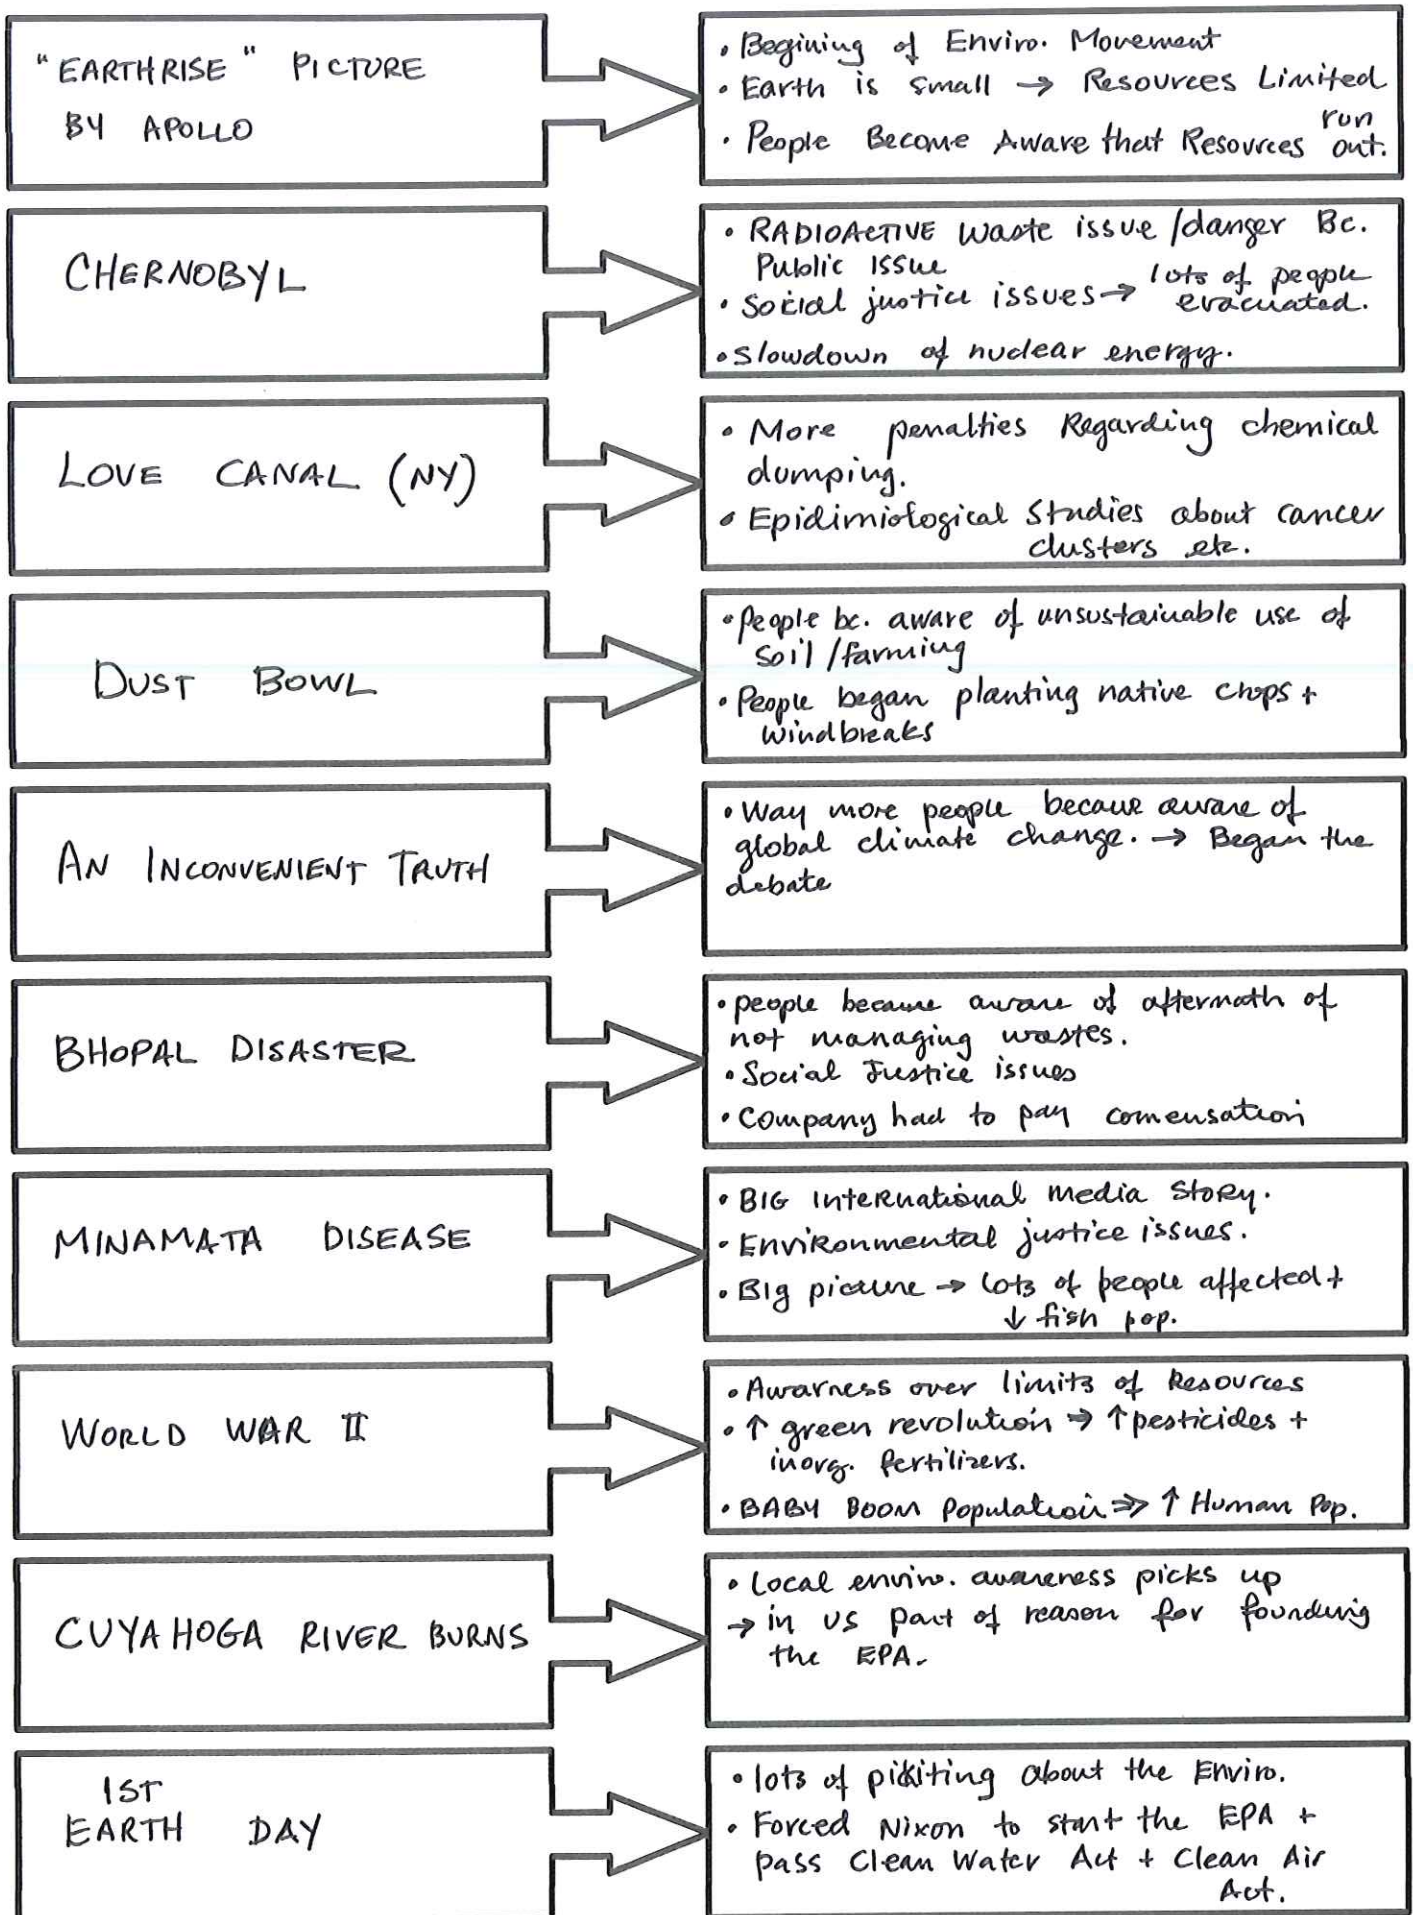 "EARTHRISE" PICTURE
BY APOLLO
• Begining of Enviro. Movement
• Earth is small → Resources Limited
• People Become Aware that Resources run out.
CHERNOBYL
• RADIOACTIVE waste issue/danger Bc.
Public Issue
• Social justice issues → lots of people
evacuated.
• Slowdown of nuclear energy.
LOVE CANAL (NY)
• More penalties Regarding chemical
dumping.
• Epidimiological Studies about cancer
clusters etc.
DUST BOWL
• People bc. aware of unsustainable use of
soil/farming
• People began planting native crops +
windbreaks
AN INCONVENIENT TRUTH
• Way more people became aware of
global climate change. → Began the
debate
BHOPAL DISASTER
• people became aware of aftermath of
not managing wastes.
• Social Justice issues
• Company had to pay comensation
MINAMATA DISEASE
• BIG International media Story.
• Environmental justice issues.
• Big picture → lots of people affected +
↓ fish pop.
WORLD WAR II
• Awarness over limits of Resources
• ↑ green revolution ⇒ ↑ pesticides +
inorg. fertilizers.
• BABY BOOM Population ⇒ ↑ Human Pop.
CUYAHOGA RIVER BURNS
• Local enviro. awareness picks up
→ in US part of reason for founding
the EPA.
1ST
EARTH DAY
• lots of pickiting about the Enviro.
• Forced Nixon to start the EPA +
pass Clean Water Act + Clean Air
Act.